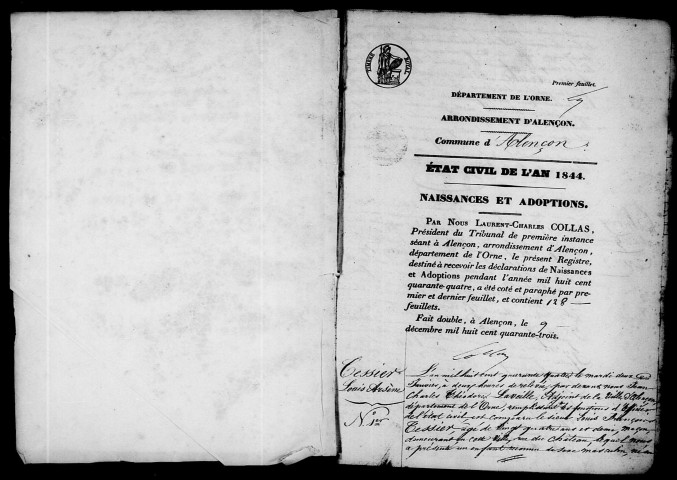 TIMBRE ROYAL
Premier feuillet.
DÉPARTEMENT DE L'ORNE.
ARRONDISSEMENT D'ALENÇON.
Commune d'Alençon
ÉTAT CIVIL DE L'AN 1844.
NAISSANCES ET ADOPTIONS.
PAR NOUS LAURENT-CHARLES COLLAS,
Président du Tribunal de première instance
séant à Alençon, arrondissement d'Alençon,
département de l'Orne, le présent Registre,
destiné à recevoir les déclarations de Naissances
et Adoptions pendant l'année mil huit cent
quarante-quatre, a été coté et paraphé par pre-
mier et dernier feuillet, et contient 128
feuillets.
Fait double, à Alençon, le 9
décembre mil huit cent quarante-trois.
Collas
Tessier
Louis Arsène
N.° 1er
L'an mil huit cent quarante quatre le mardi deux
Janvier, à deux heures de relevée, par devant nous Jean
Charles Théodore Laveille, Adjoint de la Ville d'Alençon
département de l'Orne, remplissant les fonctions d'officier
de l'état civil, est comparu le sieur Louis François
Tessier âgé de vingt quatre ans et demi, maçon
demeurant en cette Ville, rue du Château, lequel nous
a présenté un enfant nouveau né de sexe masculin, né